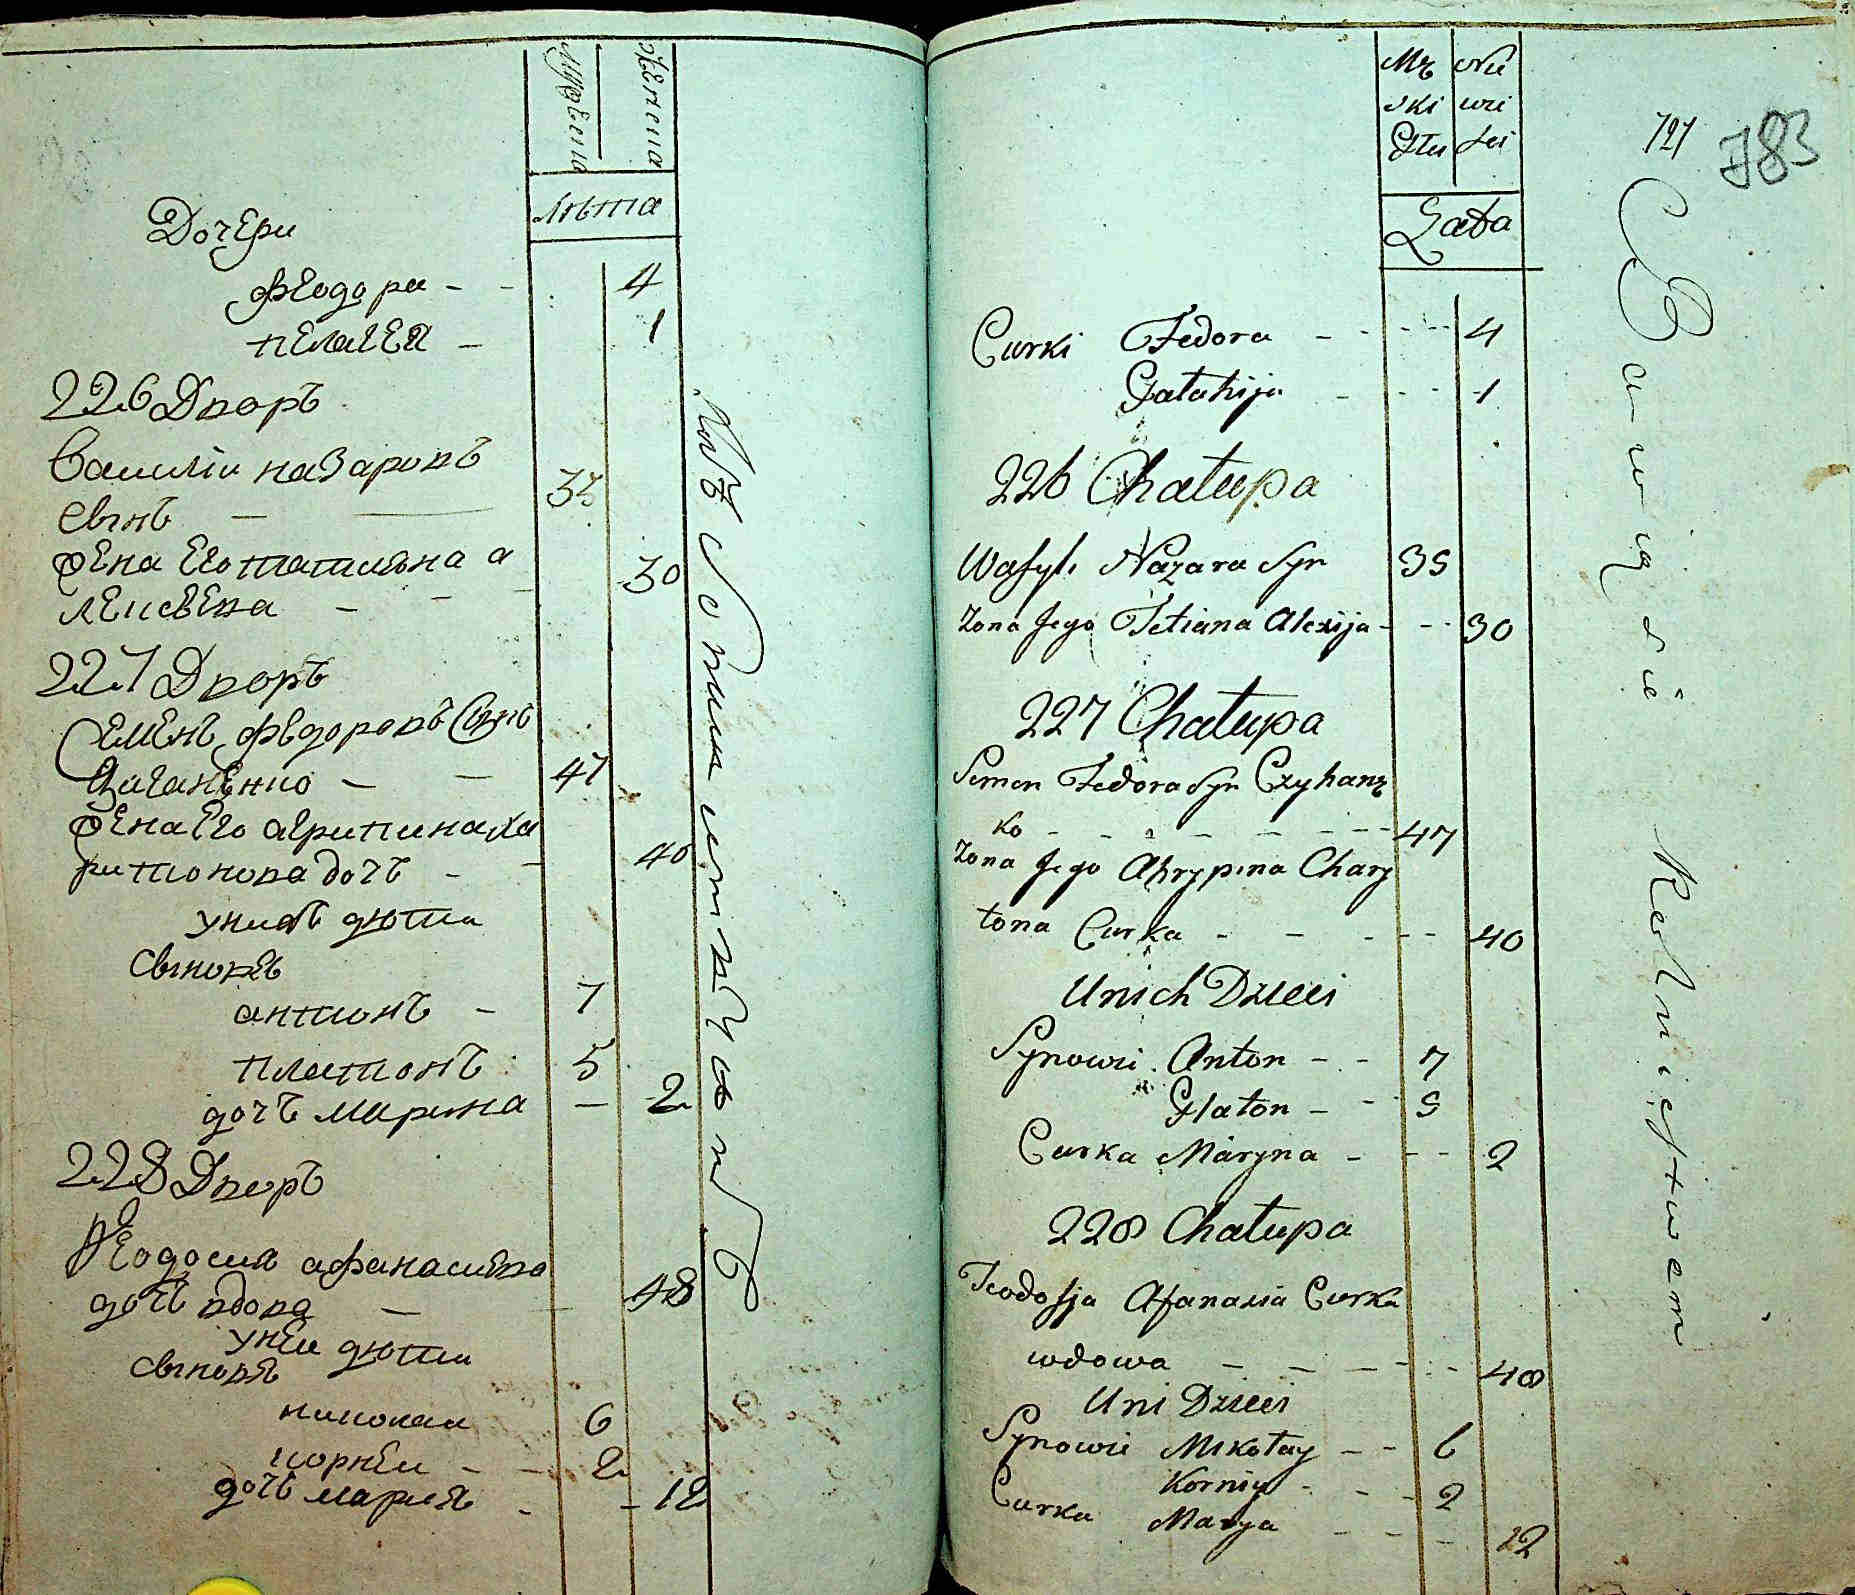 мужеска
женска
лѣта
Дочери
Феодора - - 4
пелагея - 1
226 Дворъ
Василіи назаровъ
сынъ — 33
жена его татияна а
леѯѣева - - - 30
227 Дворъ
Семенъ федоровъ Сынъ
Циганенко - — 47
жена Его агрипина ха
ритонова дочъ - - 40
у нихъ дѣти
Сыновѣ
антонъ - 7
платонъ 5
дочъ марина - 2
228 Дворъ
Феодосия афанасиева
дочъ вдова — 48
у неи дѣти
Сыновя
николаи 6
корнеи - - 2
дочъ мария - - 12
Mę ski Płci
Nie wie sci
Lata
721
783
Curki Fedora - - - - 4
Palahija - - - 1
226 Chałupa
Wasyl. Nazara Syn 35
Zona Jego Tetiana Alexija - - - 30
227 Chałupa
Semen Fedora Syn Czyhanę
ko - - - - - - - 47
Zona Jego Ahrypina Chary
tona Curka - - - - - 40
U nich Dzieci
Synowie Anton - - - 7
Płaton - - - 5
Curka Maryna - - - 2
228 Chałupa
Teodosja Afanasia Curka
wdowa - - - - - - 48
U ni Dzieci
Synowie Mikołay - - 6
Korniy - - - 2
Curka Marya - - - 12